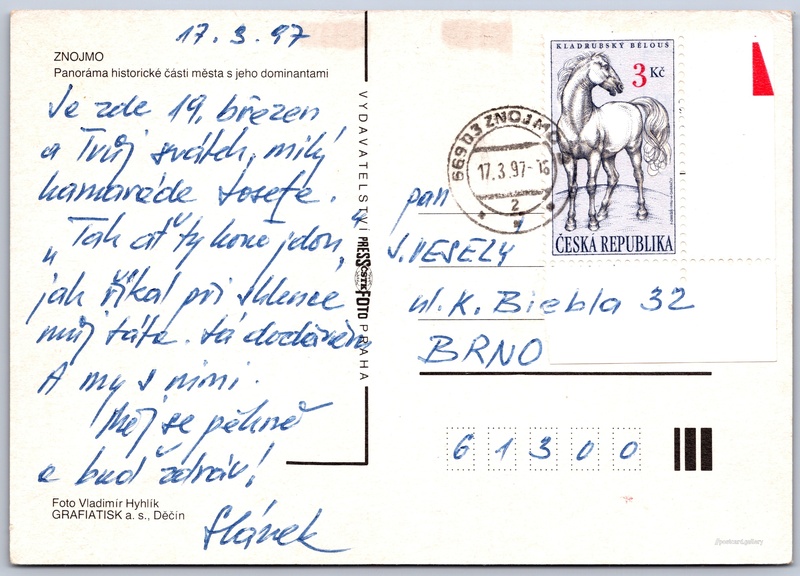 17.3.97
ZNOJMO
Panoráma historické části města s jeho dominantami
Je zde 19. březen
a Tvůj svátek, milý
kamaráde Josefe.
„Tak ať ty koně jdou,“
jak říkal při sklence
můj táta. Já dodávám
A my s nimi.
Měj se pěkně
a buď zdráv!
Slánek
Foto Vladimír Hyhlík
GRAFIATISK a. s., Děčín
VYDAVATELSTVÍ PRESSFOTO PRAHA
ČSTK
KLADRUBSKÝ BĚLOUŠ
3 Kč
ČESKÁ REPUBLIKA
669 03 ZNOJMO
17.3.97-16
2
pan
J. VESELÝ
ul. K. Biebla 32
BRNO
61300